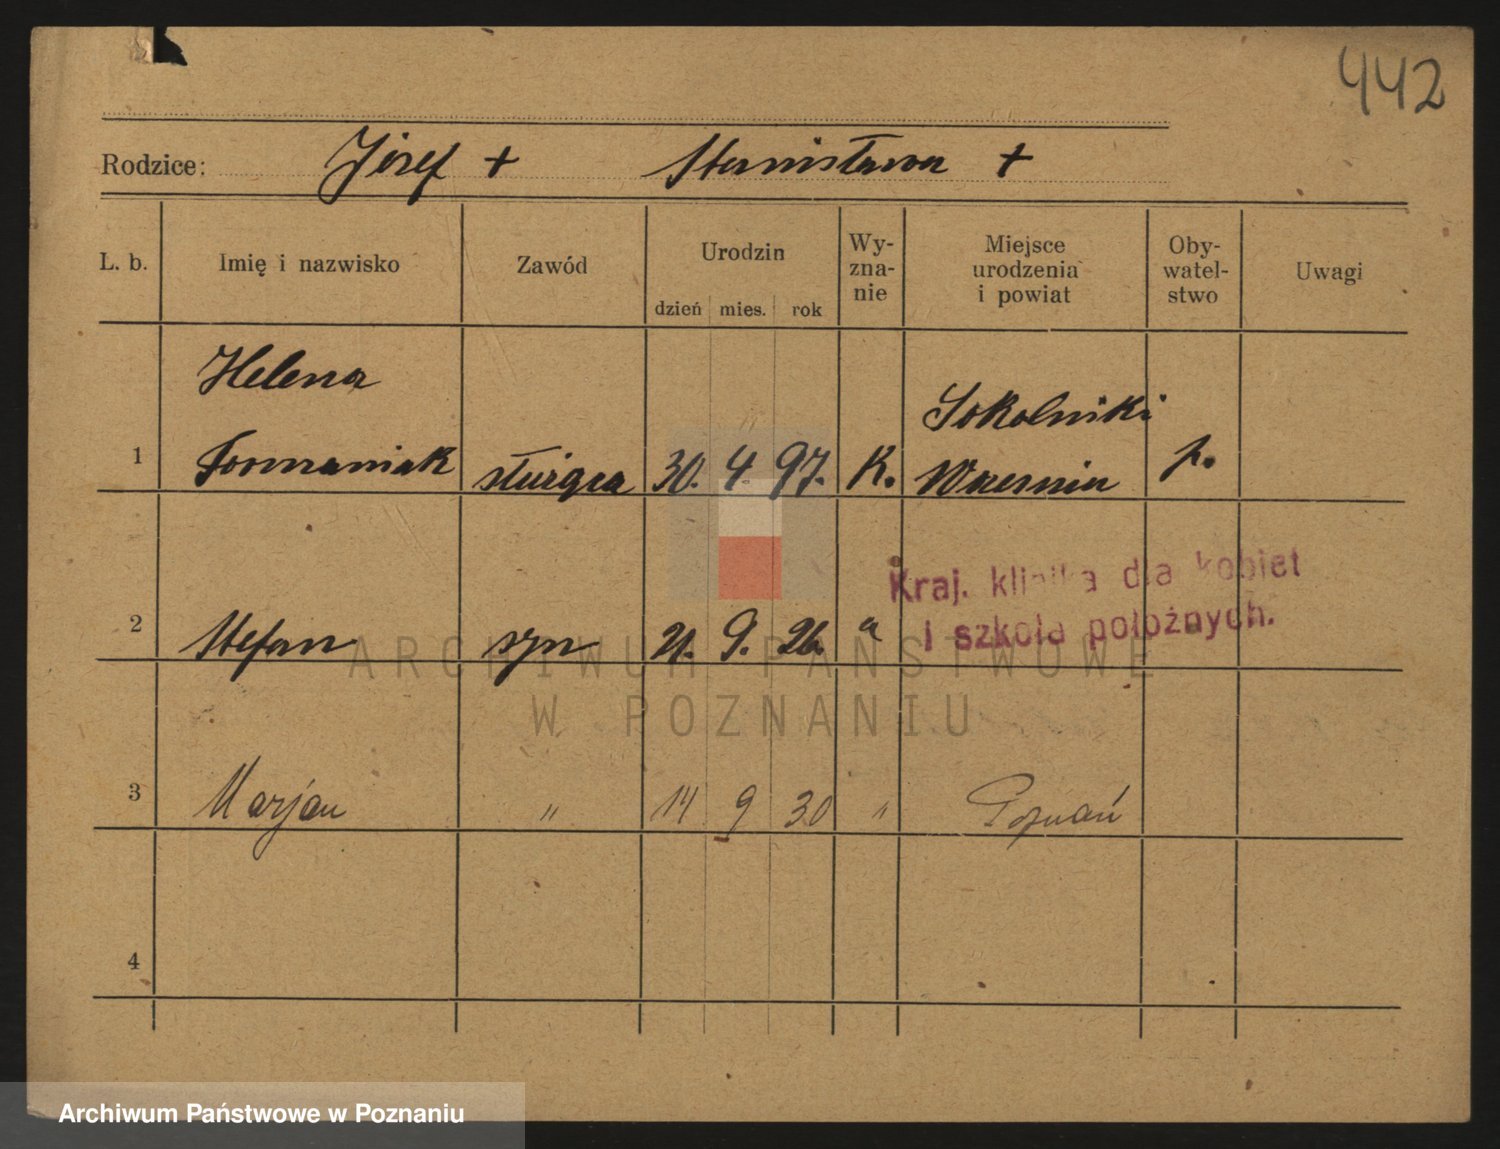 442
Rodzice: Józef + Stanisława +
L. b. Imię i nazwisko Zawód Urodzin dzień mies. rok Wy-zna-nie Miejsce urodzenia i powiat Oby-watel-stwo Uwagi
Helena Sokolniki
1 Formaniak służąca 30. 4. 97. K. Września p.
Kraj. klinika dla kobiet
i szkoła położnych.
2 Stefan syn 21. 9. 26. "
ARCHIWUM PAŃSTWOWE
W POZNANIU
3 Marjan " 14 9 30 " Poznań
4
Archiwum Państwowe w Poznaniu